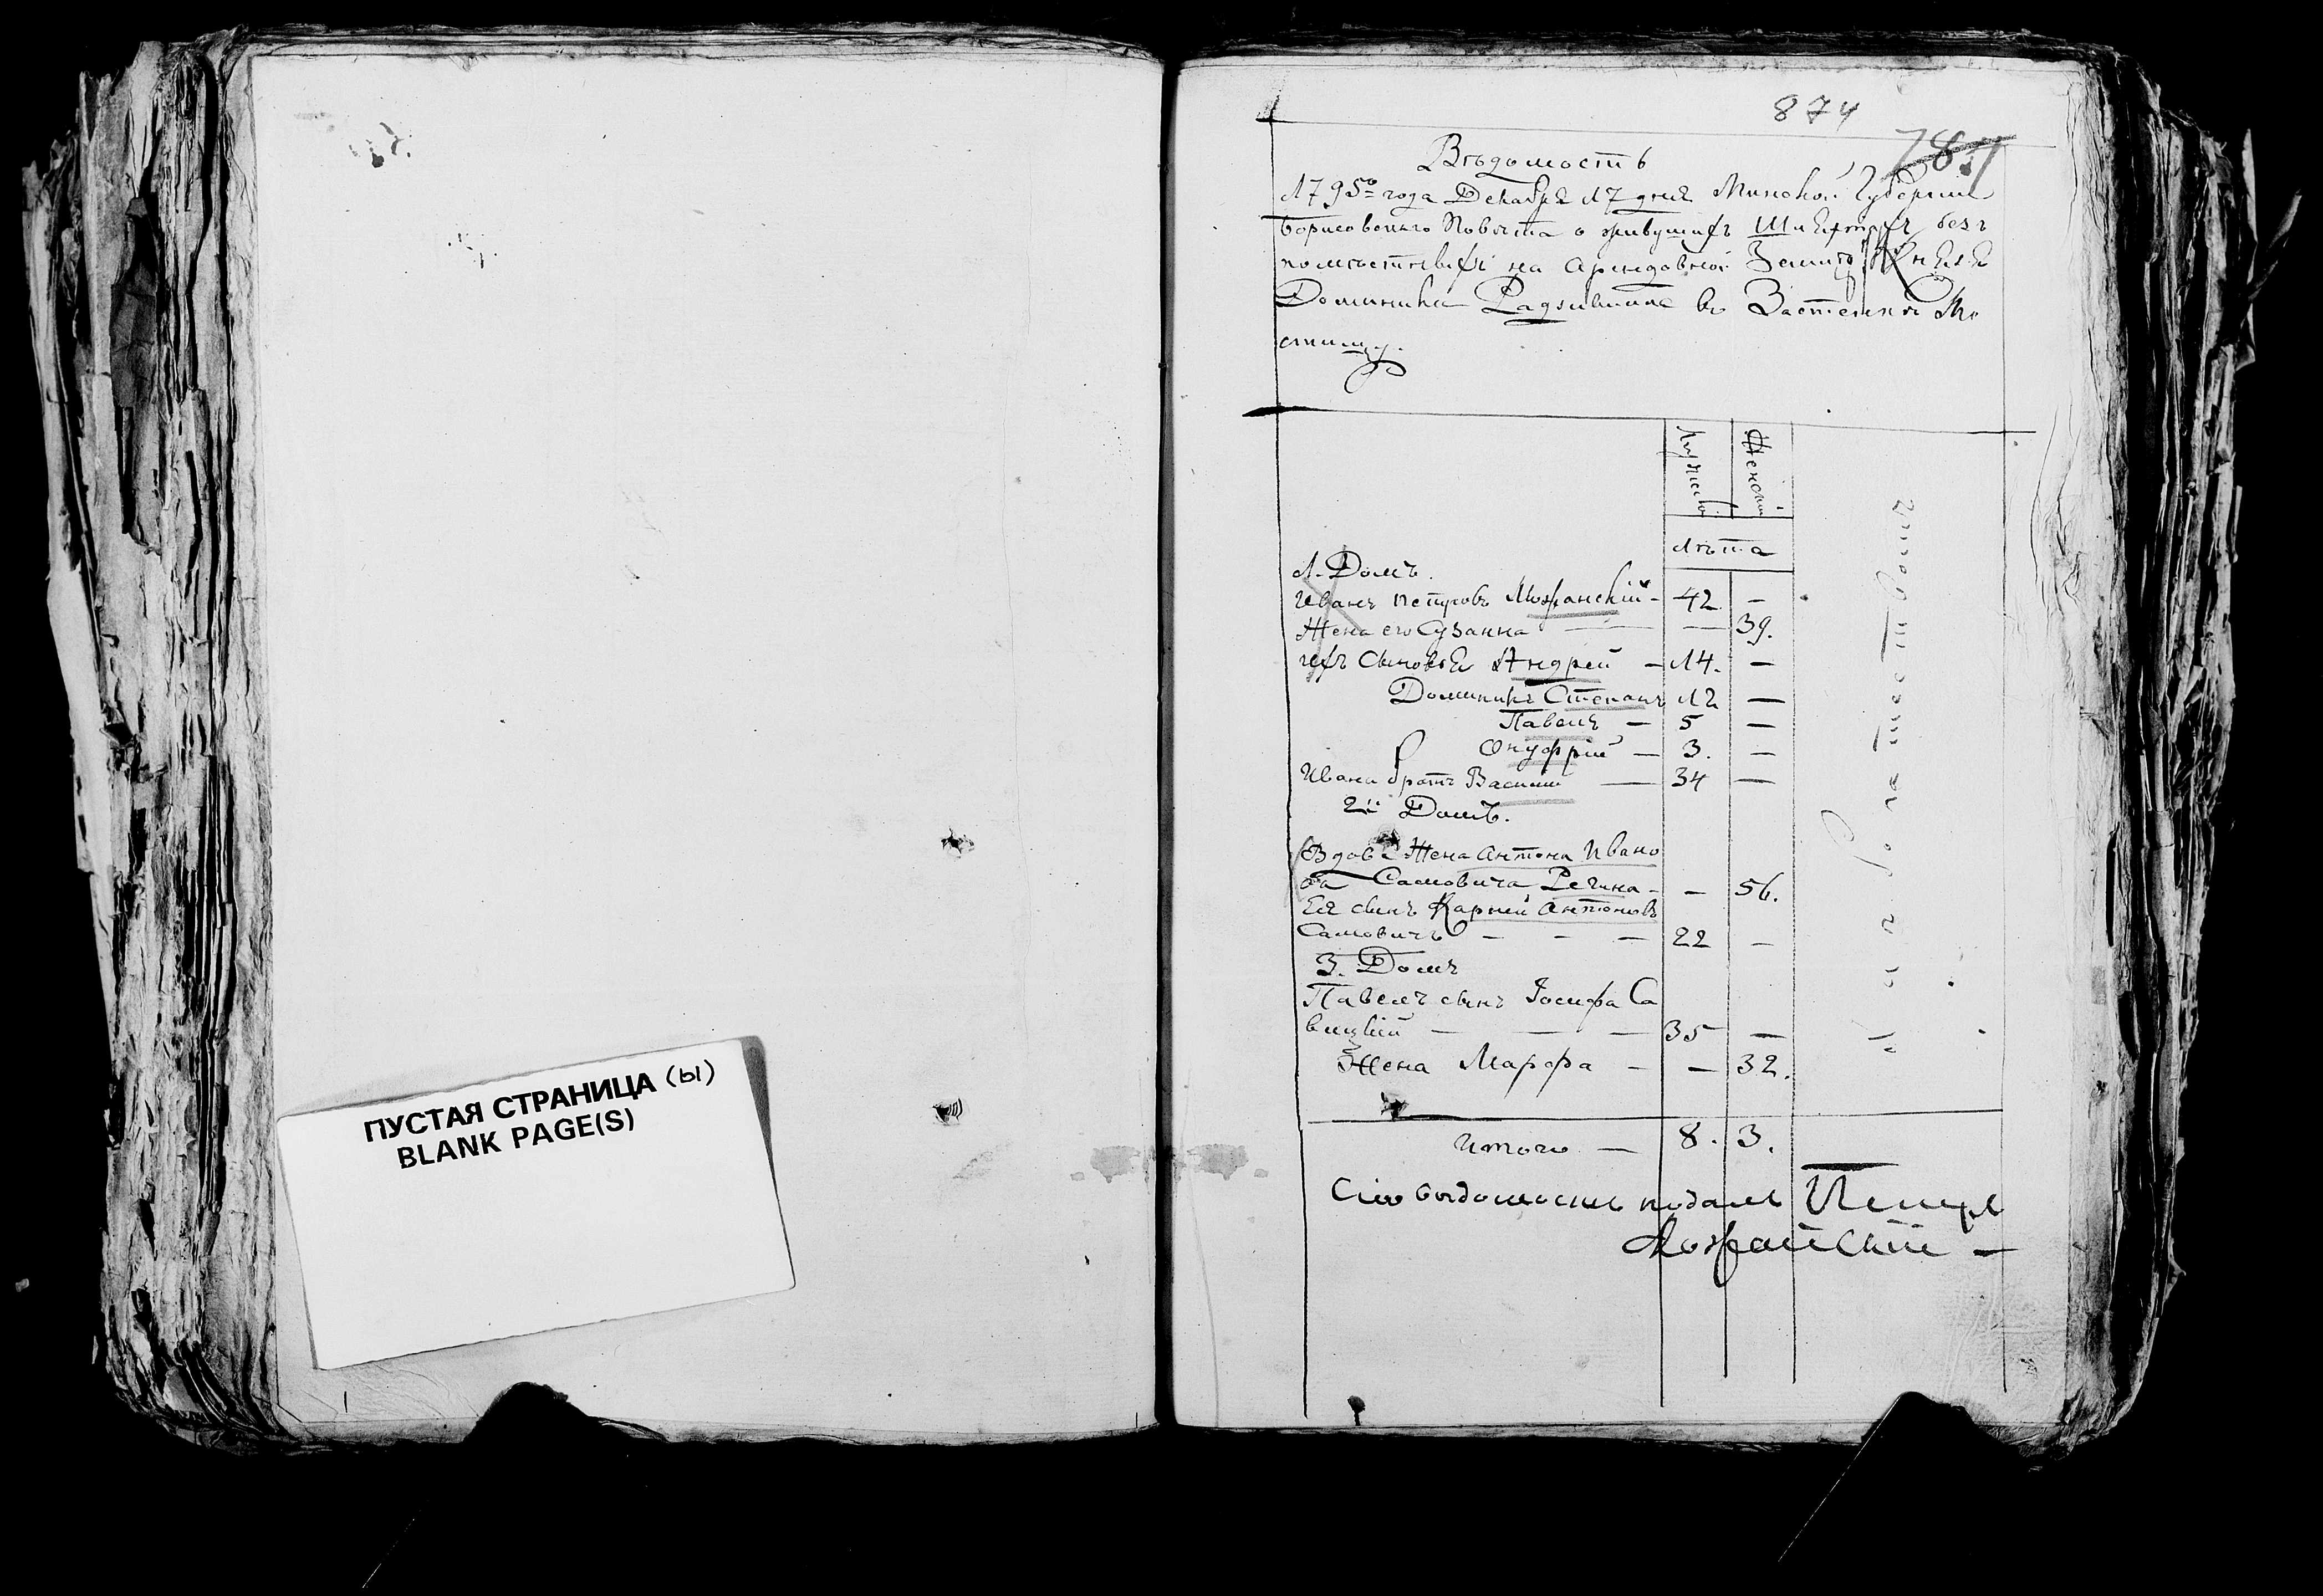 ПУСТАЯ СТРАНИЦА (ы)
BLANK PAGE(S)
874
787
Вѣдомость
1795го года Декабря 17 дня Минской Губернии
Борисовскаго Повѣта о живущихъ Шляхтѣ безъ
помѣстныхъ на арендовной Землѣ Князя
Доминика Радзивила въ Застенкѣ Мо
стищу.
Мужеска
Женска
Лѣта
1. Домъ.
Иванъ Петровъ Можанскій - 42 —
Жена его Сузанна — — 39.
ихъ Сыновья Андрей — 14. —
Доминикъ Степанъ 12 —
Павелъ — 5 —
Онуфрій — 3. —
Ивана братъ Василий — 34 —
2й Домъ.
Вдова Жена Антона Ивано
ва Самовича Регина - — 56.
Ея сынъ Карней Антоновъ
Самовичъ — — — 22 —
3. Домъ
Павелъ сынъ Іосифа Са
вицкій — — — 35 —
Жена Марфа — — 32.
Итого — 8. 3.
Сию вѣдомость подалъ Петръ
Можайскій —